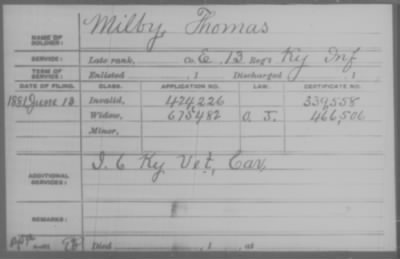 NAME OF SOLDIER: Milby, Thomas
SERVICE: Late rank, Co. E, 13 Reg't Ky Inf
TERM OF SERVICE: Enlisted , 1 Discharged , 1
DATE OF FILING. CLASS. APPLICATION NO. LAW. CERTIFICATE NO.
1881 June 13 Invalid, 424,226 339,558
Widow, 675482 O. J. 466,506
Minor,
ADDITIONAL SERVICES: J. 6 Ky Vet. Cav.
REMARKS:
Died , 1 , at